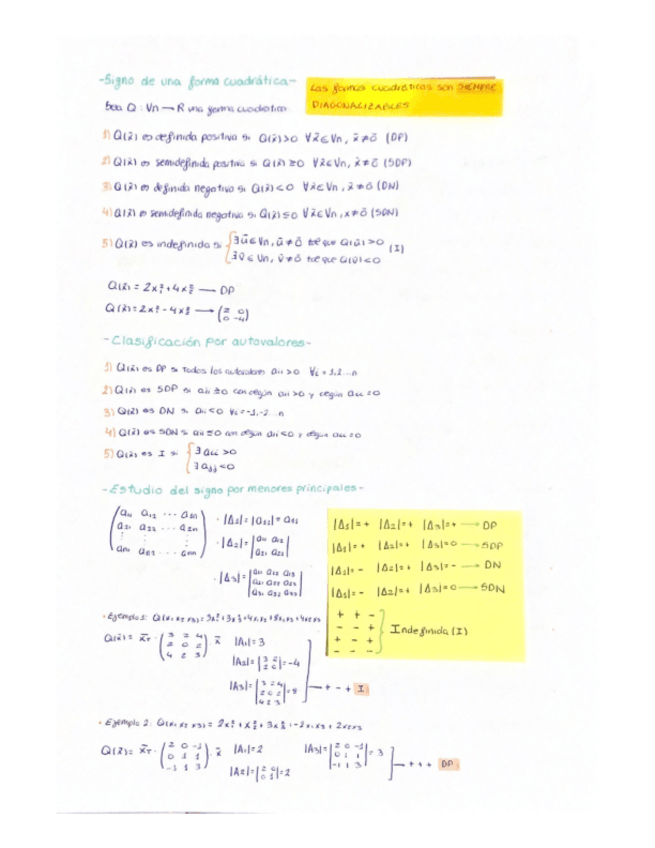 -Signo de una forma cuadrática-
Las formas cuadráticas son SIEMPRE
DIAGONALIZABLES
Sea Q : Vn → R una forma cuadrática.
1) Q(x̄) es definida positiva si Q(x̄)>0 ∀x̄∈Vn, x̄≠ō (DP)
2) Q(x̄) es semidefinida positiva si Q(x̄)≥0 ∀x̄∈Vn, x̄≠ō (SDP)
3) Q(x̄) es definida negativa si Q(x̄)<0 ∀x̄∈Vn, x̄≠ō (DN)
4) Q(x̄) es semidefinida negativa si Q(x̄)≤0 ∀x̄∈Vn, x≠ō (SDN)
5) Q(x̄) es indefinida si { ∃ū∈Vn, ū≠ō tal que Q(ū)>0 (I)
∃v̄∈Vn, v̄≠ō tal que Q(v̄)<0
Q(x̄) = 2x₁²+4x₂² → DP
Q(x̄)=2x₁²-4x₂² → (2 0
0 -4)
-Clasificación por autovalores-
1) Q(x̄) es DP si todos los autovalores aii>0 ∀i=1,2...n
2) Q(x̄) es SDP si aii≥0 con algún aii>0 y algún aii=0
3) Q(x̄) es DN si aii<0 ∀i=-1,-2...n
4) Q(x̄) es SDN si aii≤0 con algún aii<0 y algún aii=0
5) Q(x̄) es I si { ∃ aii>0
∃ ajj<0
-Estudio del signo por menores principales-
(a₁₁ a₁₂ ... a₁n
a₂₁ a₂₂ ... a₂n
⋮ ⋮ ⋮
an₁ an₂ ... ann)
· |Δ₁|=|a₁₁|=a₁₁
· |Δ₂|=|a₁₁ a₁₂
a₂₁ a₂₂|
· |Δ₃|=|a₁₁ a₁₂ a₁₃
a₂₁ a₂₂ a₂₃
a₃₁ a₃₂ a₃₃|
|Δ₁|=+ |Δ₂|=+ |Δ₃|=+ → DP
|Δ₁|=+ |Δ₂|=+ |Δ₃|=0 → SDP
|Δ₁|=- |Δ₂|=+ |Δ₃|=- → DN
|Δ₁|=- |Δ₂|=+ |Δ₃|=0 → SDN
+ + -
- - +
+ - +
- - -
} Indefinida (I)
· Ejemplo 1: Q(x₁ x₂ x₃)=
Q(x̄)= x̄T · (3 2 4
2 0 2
4 2 3) · x̄
|A₁|=3
|A₂|=|3 2
2 0|=-4
|A₃|=|3 2 4
2 0 2
4 2 3|=8
→ + - + I
· Ejemplo 2: Q(x₁ x₂ x₃)= 2x₁²+x₂²+3x₃²-2x₁x₃+2x₂x₃
Q(x̄)= x̄T · (2 0 -1
0 1 1
-1 1 3) · x̄
|A₁|=2
|A₂|=|2 0
0 1|=2
|A₃|=|2 0 -1
0 1 1
-1 1 3|=3
→ + + + DP